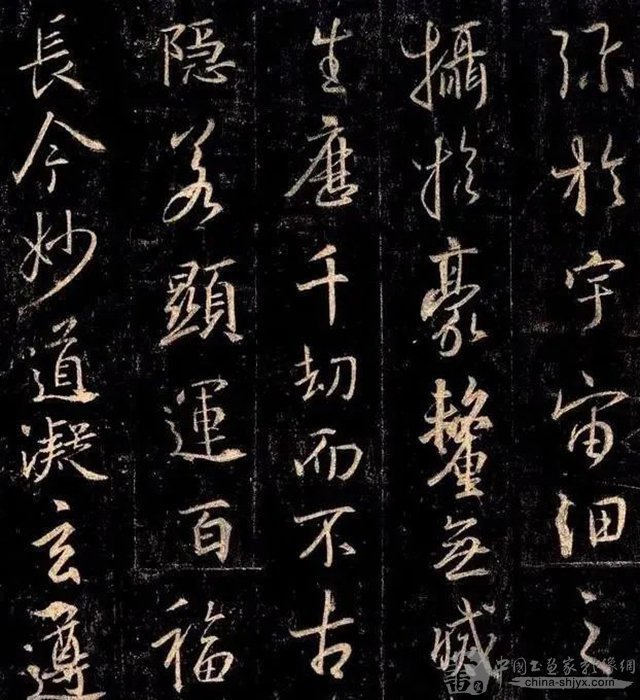 弥於宇宙細之
攝於豪釐無滅
生歷千劫而不古
隱若顯運百福
長今妙道凝玄遵
中國书画家影像網
china-shjyx.com